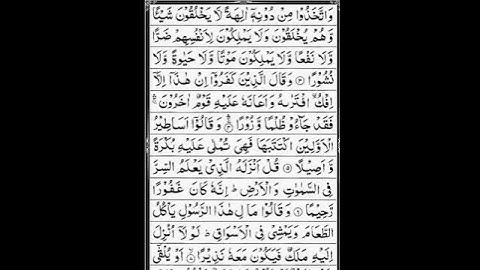 وَاتَّخَذُوْا مِنْ دُوْنِهٖۤ اٰلِهَةً لَّا يَخْلُقُوْنَ شَيْـًٔا
وَّهُمْ يُخْلَقُوْنَ وَلَا يَمْلِكُوْنَ لِاَنْفُسِهِمْ ضَرًّا
وَّلَا نَفْعًا وَّلَا يَمْلِكُوْنَ مَوْتًا وَّلَا حَيٰوةً وَّلَا
نُشُوْرًا ۝۳ وَقَالَ الَّذِيْنَ كَفَرُوْۤا اِنْ هٰذَاۤ اِلَّاۤ
اِفْكُ ۨافْتَرٰىهُ وَاَعَانَهٗ عَلَيْهِ قَوْمٌ اٰخَرُوْنَ ۛۚ
فَقَدْ جَآءُوْ ظُلْمًا وَّزُوْرًا ۝۴ وَقَالُوْۤا اَسَاطِيْرُ
الْاَوَّلِيْنَ اكْتَتَبَهَا فَهِيَ تُمْلٰى عَلَيْهِ بُكْرَةً
وَّاَصِيْلًا ۝۵ قُلْ اَنْزَلَهُ الَّذِيْ يَعْلَمُ السِّرَّ
فِي السَّمٰوٰتِ وَالْاَرْضِ ؕ اِنَّهٗ كَانَ غَفُوْرًا
رَّحِيْمًا ۝۶ وَقَالُوْا مَالِ هٰذَا الرَّسُوْلِ يَاْكُلُ
الطَّعَامَ وَيَمْشِيْ فِي الْاَسْوَاقِ ؕ لَوْلَاۤ اُنْزِلَ
اِلَيْهِ مَلَكٌ فَيَكُوْنَ مَعَهٗ نَذِيْرًا ۝۷ اَوْ يُلْقٰۤى